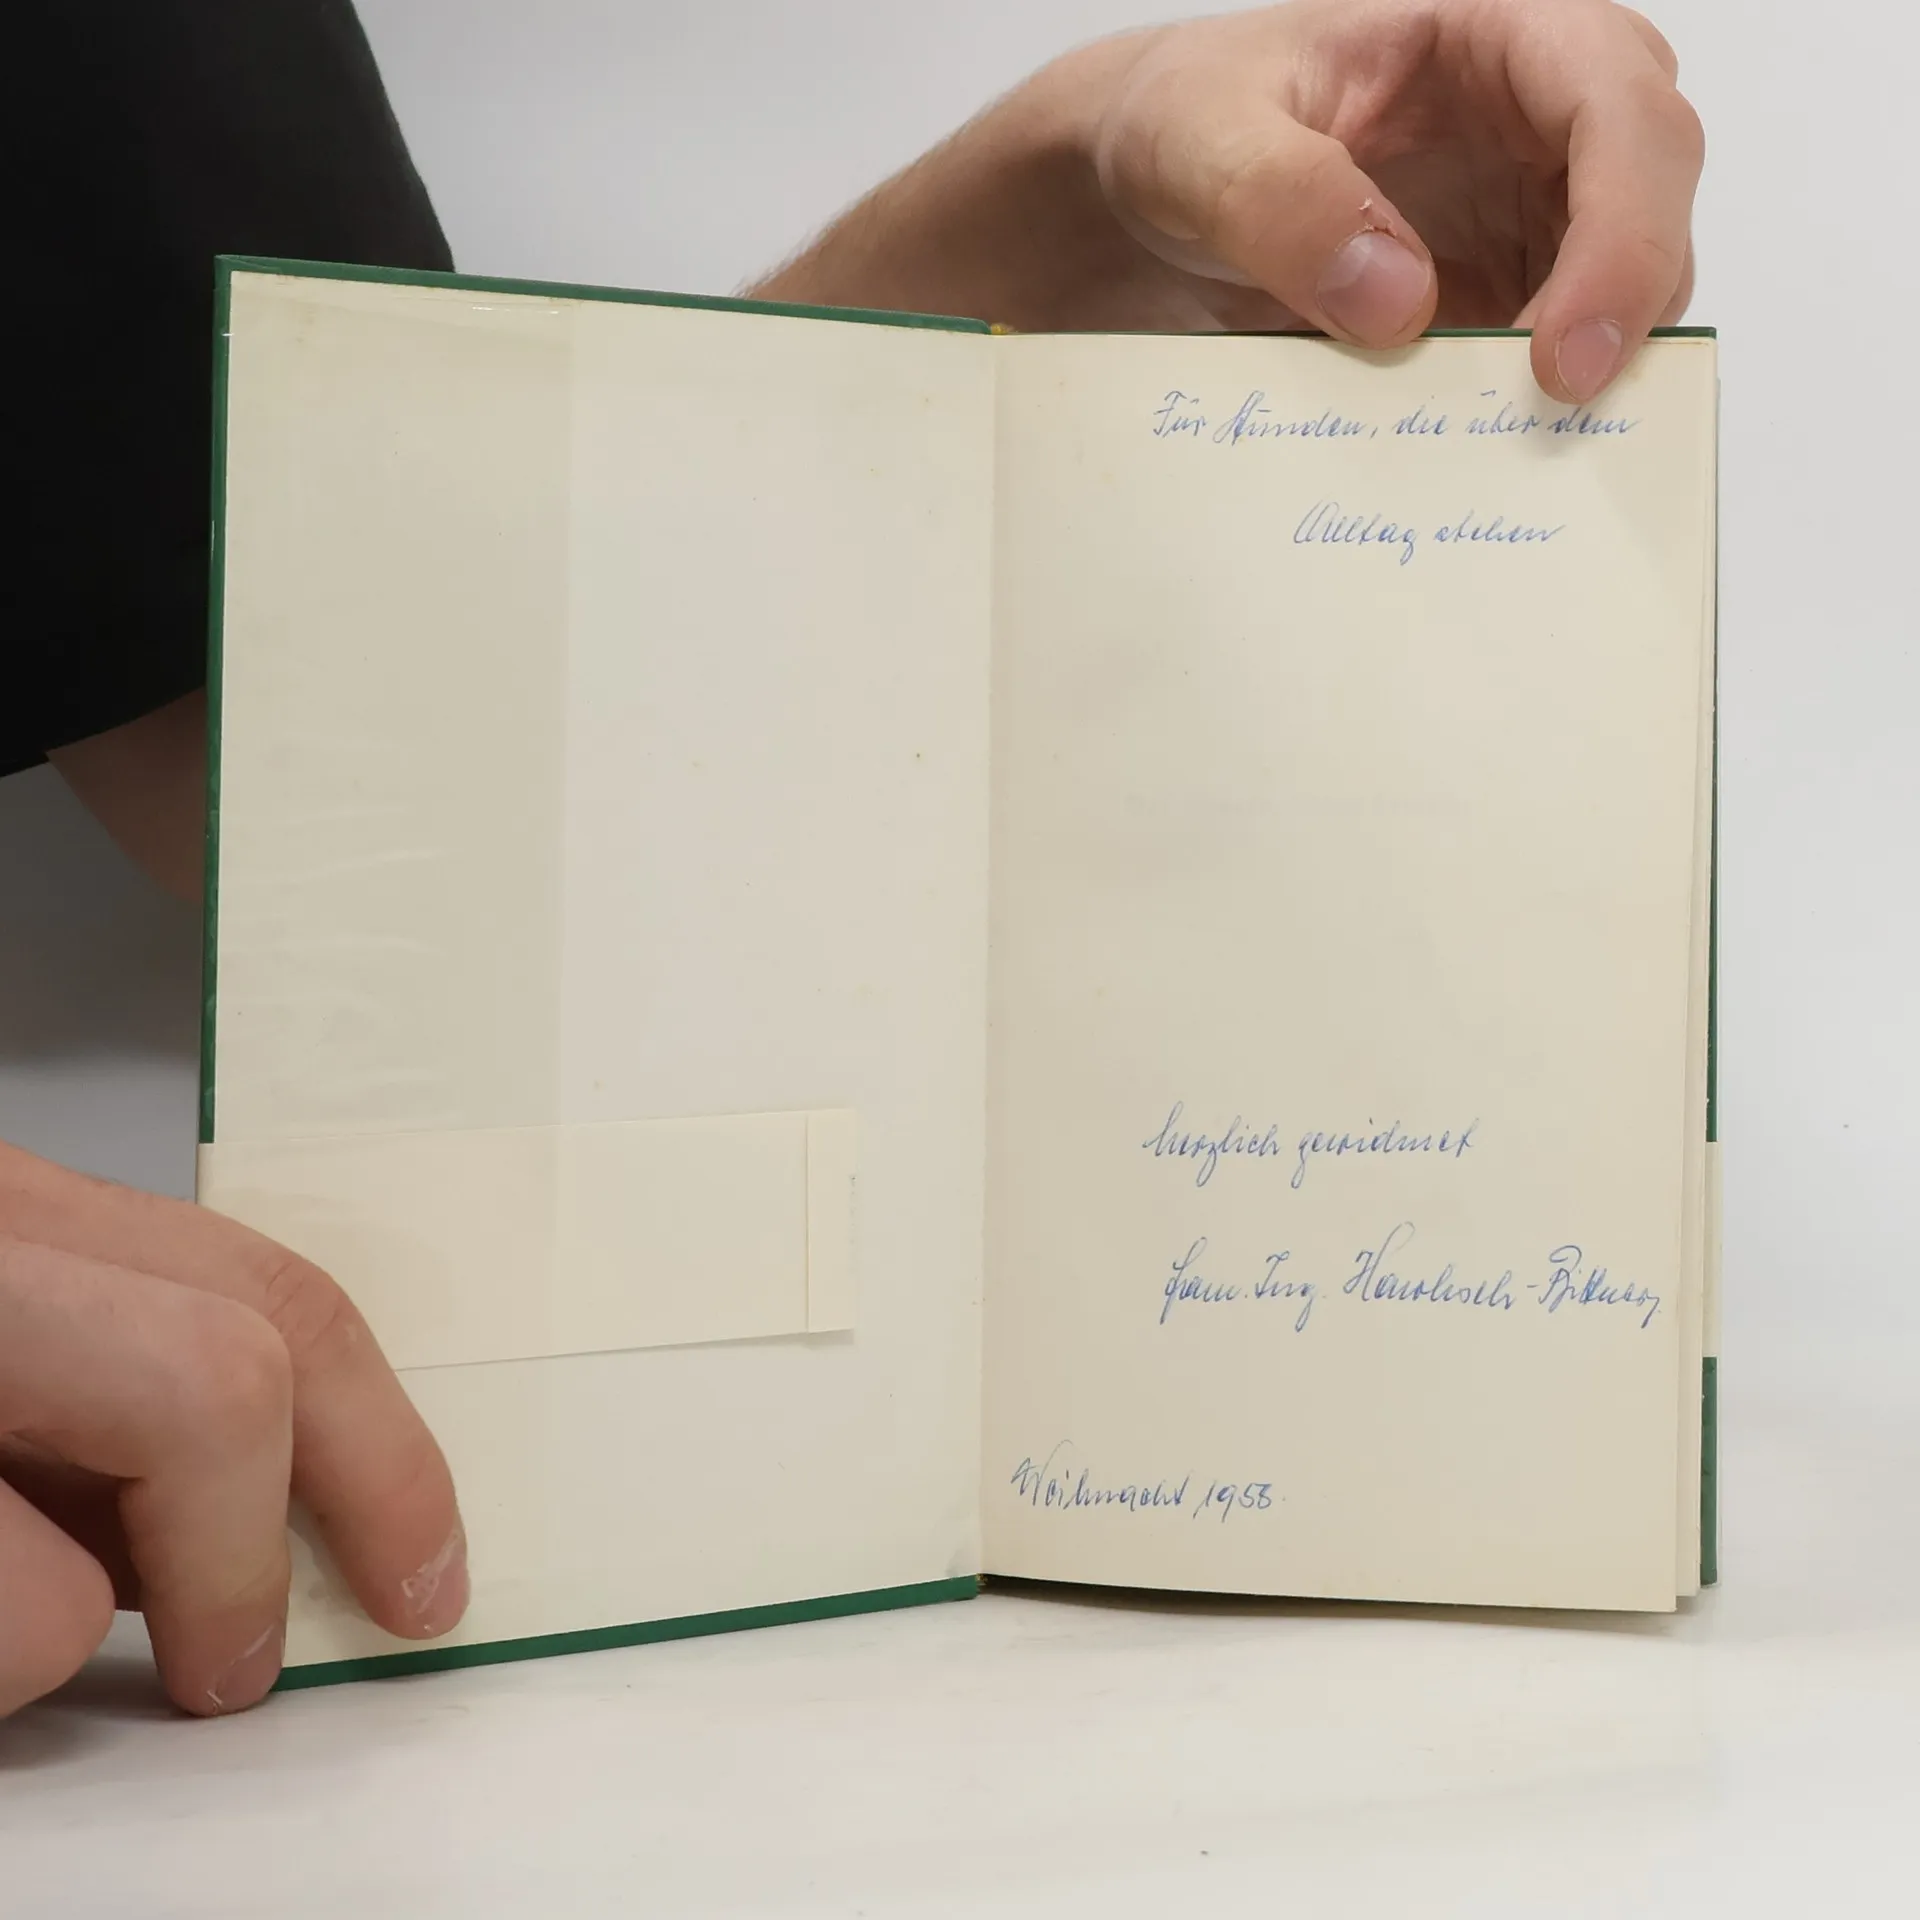 Für Stunden, die über dem
Alltag stehen
herzlich gewidmet
Fam. Ing.
Weihnacht 1958.